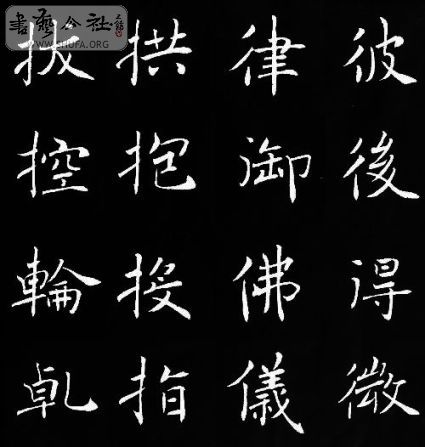 彼後得微
律御佛儀
拱抱指
拔控輪乹
書藝公社
WWW.SHUFA.ORG